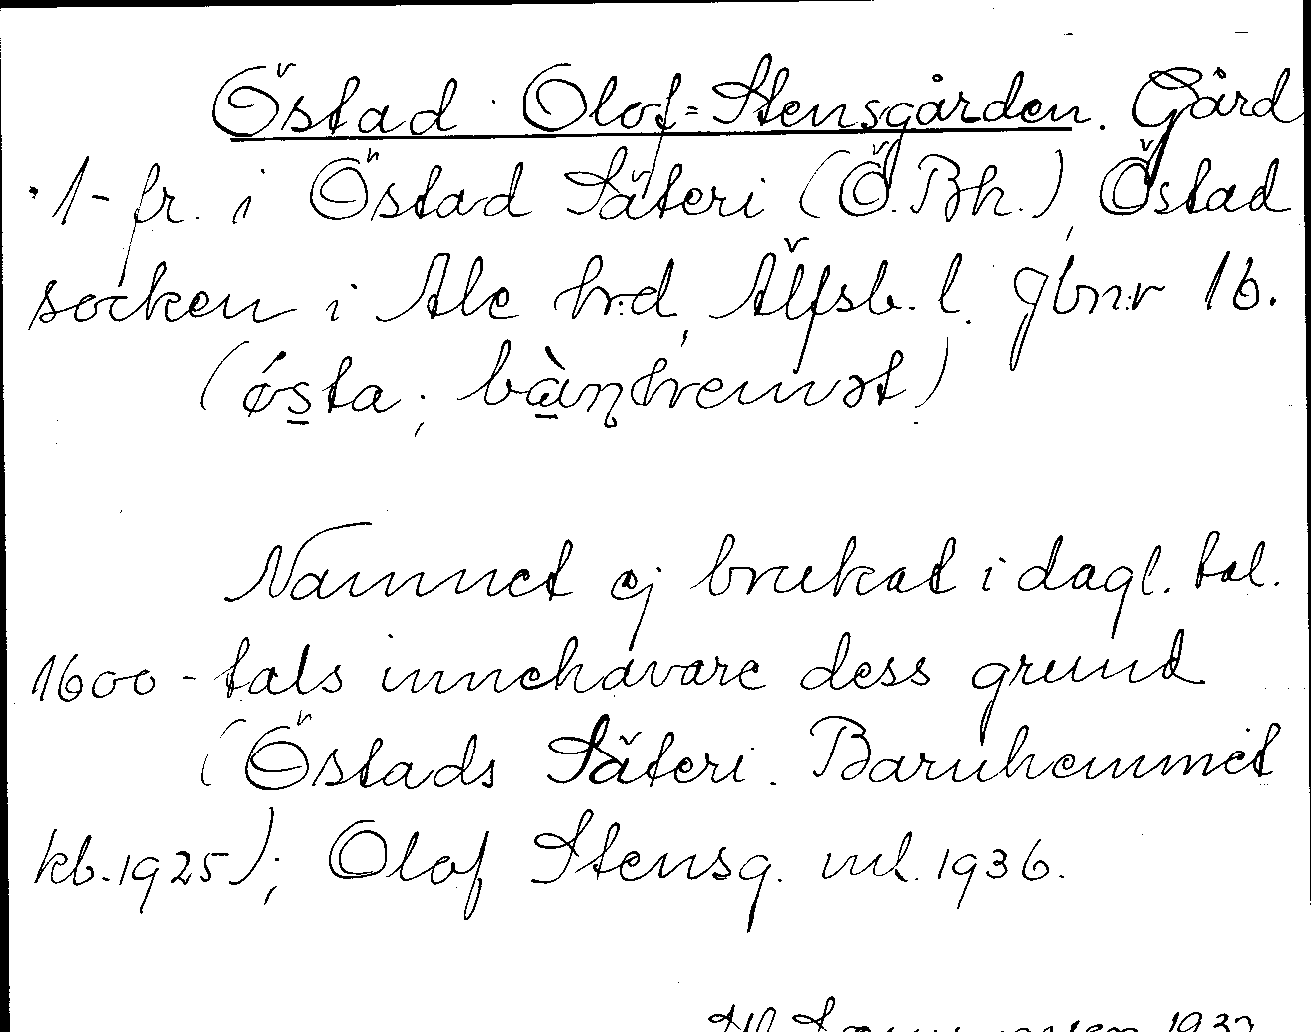 Östad Olof-Stensgården. Gård
1- fr. i Östad Säteri (Ö. Bh.), Östad
socken i Ale hrd, Älfsb. l. Jbnr 16.
(ǿsta; bàṇhemət.)
Namnet ej brukat i dagl. tal.
1600-tals innehavare dess grund
(Östads Säteri. Barnhemmet
kb. 1925); Olof Stensg. ml. 1936.
1932